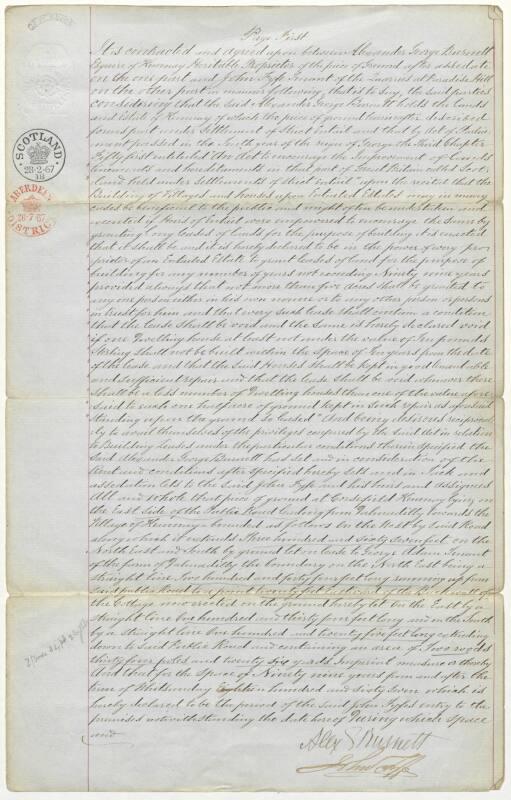 Page First
It is contracted and agreed upon between Alexander George Burnett
Esquire of Kemnay Heritable Proprietor of the piece of Ground after described
on the one part and John Fyfe Tenant of the Quarries at Paradise Hill
on the other part in manner following, that is to say, the said parties
considering that the said Alexander George Burnett holds the Lands
and Estate of Kemnay of which the piece of ground hereinafter described
forms part under Settlement of Strict Entail and that by Act of Parlia
ment passed in the Tenth year of the reign of George the Third Chapter
Fifty first intituled "An Act to encourage the Improvement of Lands
Tenements and hereditaments in that part of Great Britain called Scot
land held under Settlements of strict entail" upon the recital that the
Building of Villages and houses upon Entailed Estates may in many
cases be beneficial to the public and might often be undertaken and
executed if Heirs of Entail were empowered to encourage the same by
granting long leases of lands for the purpose of building It is enacted
that it shall be and it is hereby declared to be in the power of every pro
prietor of an Entailed Estate to grant leases of land for the purpose of
building for any number of years not exceeding Ninety nine years
provided always that not more than five acres shall be granted to
any one person either in his own name or to any other person or persons
in trust for him and that every such lease shall contain a condition
that the lease shall be void and the same is hereby declared void
if one Dwelling house at least not under the value of Ten pounds
Sterling shall not be built within the space of Ten years from the date
of the lease and that the said Houses shall be kept in good tenantable
and sufficient repair and that the lease shall be void whenever there
shall be a less number of Dwelling houses than one of the value afore
said to each one half acre of ground kept in such repair as aforesaid
standing upon the ground so leased" And being desirous reciproc
ally to avail themselves of the privileges conferred by the said Act in relation
to Building Leases under the particular conditions therein specified the
said Alexander George Burnett has Set and in consideration of the
Rent and conditions after specified hereby Sets and in Tack and
assedation Lets to the said John Fyfe and his heirs and assignees
All and whole that piece of ground at Kemnay lying on
the East side of the Public Road leading from towards the
Village of Kemnay bounded as follows On the West by said Road
along which it extends Three hundred and sixty seven feet on the
North East and South by ground let on Lease to George Adam Tenant
of the farm of the boundary on the North East being a
straight line Two hundred and forty four feet long running up from
said public Road to a point twenty feet Eastward of the Back wall of
the Cottage now erected on the ground hereby let On the East by a
straight line One hundred and thirty four feet long and on the South
by a straight line One hundred and twenty five feet long extending
down to said Public Road and containing an area of Two roods
thirty four poles and twenty six yards Imperial measure or thereby
And that for the Space of Ninety nine years from and after the
term of Whitsunday Eighteen hundred and sixty seven which is
hereby declared to be the period of the said John Fyfe's entry to the
premises notwithstanding the date hereof During which space
and
Alex G Burnett
John Fyfe
SCOTLAND
28·2·67
ABERDEEN
28·7·67
DISTRICT